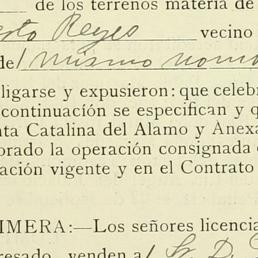 de los terrenos materia de
erto Reyes vecino
de l mismo nom
ligarse y expusieron: que celeb
continuación se especifican y q
nta Catalina del Alamo y Anexa
orado la operación consignada
ación vigente y en el Contrato
IMERA:—Los señores licencia
resado, venden a l Sr. D.